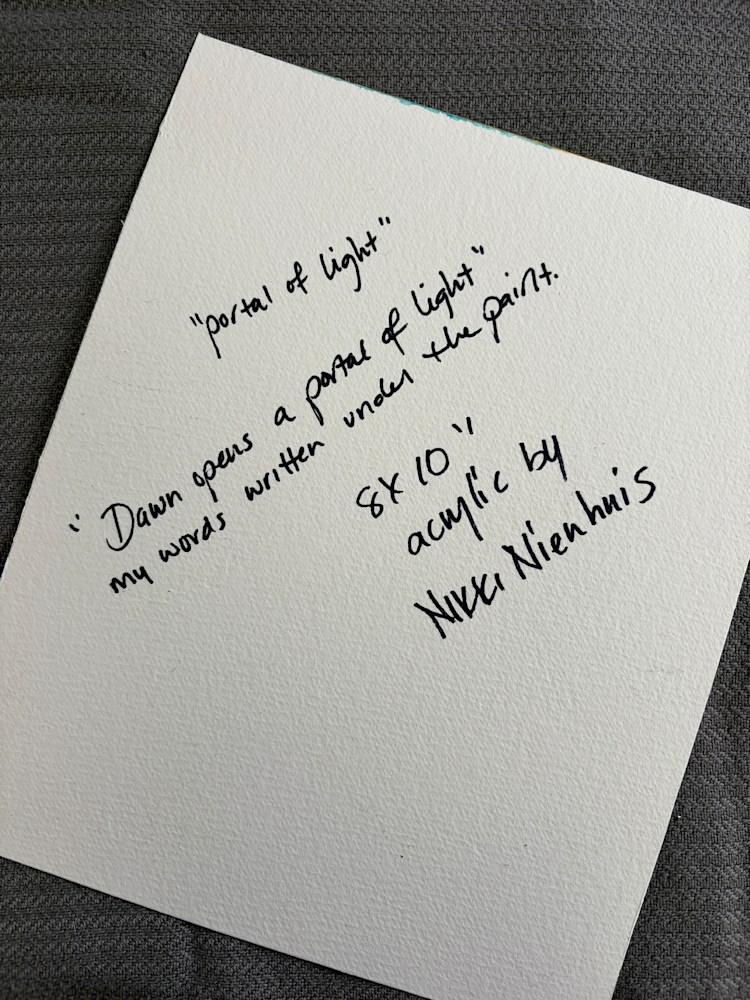 "portal of light"
"Dawn opens a portal of light"
my words written under the paint.
8x10"
acrylic by
Nikki Nienhuis